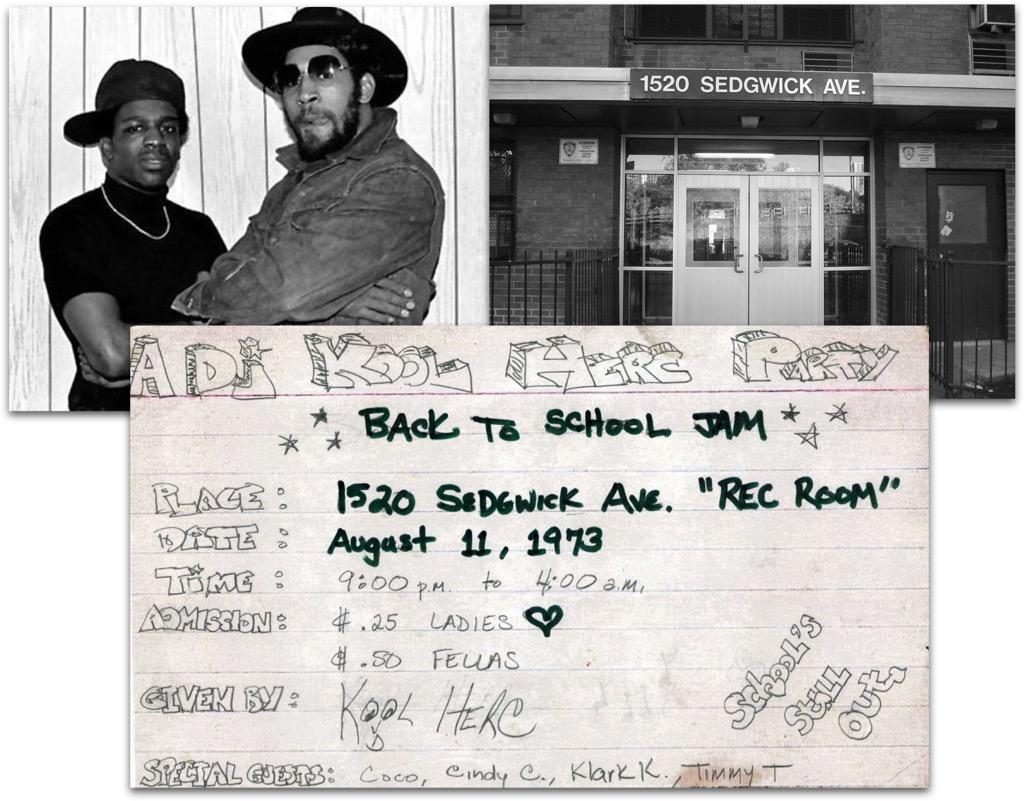 1520 SEDGWICK AVE.
A DJ KOOL HERC PARTY
BACK TO SCHOOL JAM
PLACE: 1520 SEDGWICK AVE. "REC ROOM"
DATE: August 11, 1973
TIME: 9:00 p.m. to 4:00 a.m.
ADMISSION: $.25 LADIES
$.50 FELLAS
GIVEN BY: KOOL HERC
SCHOOL'S
STILL
OUT.
SPECIAL GUESTS: Coco, Cindy C., Klark K., Timmy T